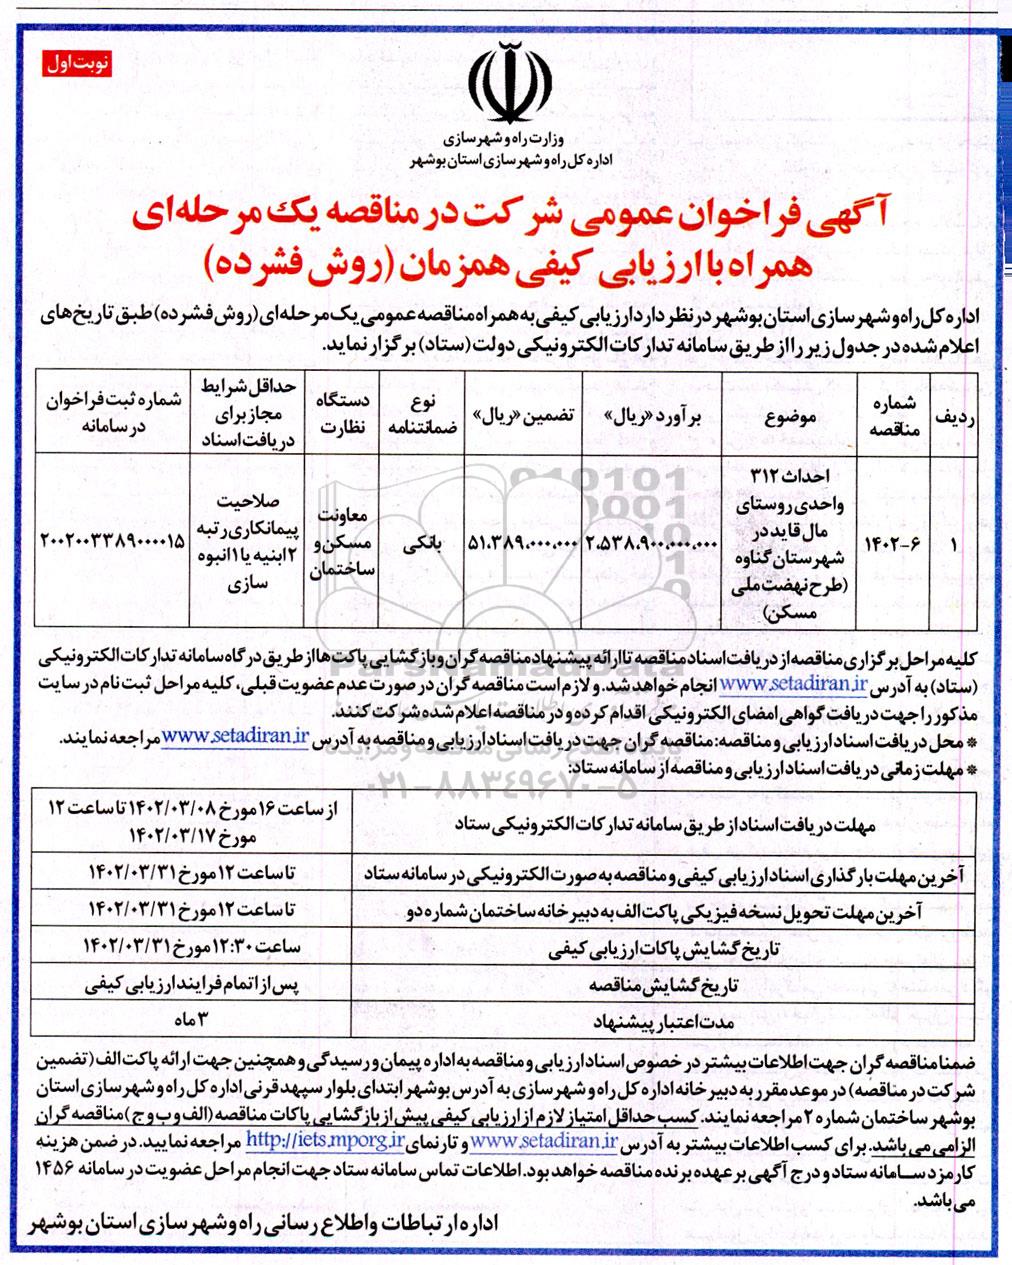 نوبت اول
وزارت راه و شهرسازی
اداره کل راه و شهرسازی استان بوشهر
آگهی فراخوان عمومی شرکت در مناقصه یک مرحله‌ای
همراه با ارزیابی کیفی همزمان (روش فشرده)
اداره کل راه و شهرسازی استان بوشهر در نظر دارد ارزیابی کیفی به همراه مناقصه عمومی یک مرحله‌ای (روش فشرده) طبق تاریخ‌های
اعلام شده در جدول زیر را از طریق سامانه تدارکات الکترونیکی دولت (ستاد) برگزار نماید.
ردیف
شماره
مناقصه
موضوع
برآورد «ریال»
تضمین «ریال»
نوع
ضمانتنامه
دستگاه
نظارت
حداقل شرایط
مجاز برای
دریافت اسناد
شماره ثبت فراخوان
در سامانه
۱
۱۴۰۲-۶
احداث ۳۱۲
واحدی روستای
مال قاید در
شهرستان گناوه
(طرح نهضت ملی
مسکن)
۲،۵۳۸،۹۰۰،۰۰۰،۰۰۰
۵۱،۳۸۹،۰۰۰،۰۰۰
بانکی
معاونت
مسکن و
ساختمان
صلاحیت
پیمانکاری رتبه
۲ ابنیه یا ۱ انبوه
سازی
۲۰۰۲۰۰۳۳۸۹۰۰۰۰۱۵
کلیه مراحل برگزاری مناقصه از دریافت اسناد مناقصه تا ارائه پیشنهاد مناقصه گران و بازگشایی پاکت‌ها از طریق درگاه سامانه تدارکات الکترونیکی
(ستاد) به آدرس www.setadiran.ir انجام خواهد شد. و لازم است مناقصه گران در صورت عدم عضویت قبلی، کلیه مراحل ثبت نام در سایت
مذکور را جهت دریافت گواهی امضای الکترونیکی اقدام کرده و در مناقصه اعلام شده شرکت کنند.
* محل دریافت اسناد ارزیابی و مناقصه: مناقصه گران جهت دریافت اسناد ارزیابی و مناقصه به آدرس www.setadiran.ir مراجعه نمایند.
* مهلت زمانی دریافت اسناد ارزیابی و مناقصه از سامانه ستاد:
ParsNamadData
پایگاه اطلاع رسانی مناقصه و مزایده
۰۲۱-۸۸۳۴۹۶۷۰-۵
مهلت دریافت اسناد از طریق سامانه تدارکات الکترونیکی ستاد
از ساعت ۱۶ مورخ ۱۴۰۲/۰۳/۰۸ تا ساعت ۱۲
مورخ ۱۴۰۲/۰۳/۱۷
آخرین مهلت بارگذاری اسناد ارزیابی کیفی و مناقصه به صورت الکترونیکی در سامانه ستاد
تا ساعت ۱۲ مورخ ۱۴۰۲/۰۳/۳۱
آخرین مهلت تحویل نسخه فیزیکی پاکت الف به دبیرخانه ساختمان شماره دو
تا ساعت ۱۲ مورخ ۱۴۰۲/۰۳/۳۱
تاریخ گشایش پاکات ارزیابی کیفی
ساعت ۱۲:۳۰ مورخ ۱۴۰۲/۰۳/۳۱
تاریخ گشایش مناقصه
پس از اتمام فرایند ارزیابی کیفی
مدت اعتبار پیشنهاد
۳ ماه
ضمنا مناقصه گران جهت اطلاعات بیشتر در خصوص اسناد ارزیابی و مناقصه به اداره پیمان و رسیدگی و همچنین جهت ارائه پاکت الف (تضمین
شرکت در مناقصه) در موعد مقرر به دبیرخانه اداره کل راه و شهرسازی به آدرس بوشهر ابتدای بلوار سپهبد قرنی اداره کل راه و شهرسازی استان
بوشهر ساختمان شماره ۲ مراجعه نمایند. کسب حداقل امتیاز لازم از ارزیابی کیفی پیش از بازگشایی پاکات مناقصه (الف و ب و ج) مناقصه گران
الزامی می باشد. برای کسب اطلاعات بیشتر به آدرس www.setadiran.ir و تارنمای http://iets.mporg.ir مراجعه نمایید. در ضمن هزینه
کارمزد سامانه ستاد و درج آگهی بر عهده برنده مناقصه خواهد بود. اطلاعات تماس سامانه ستاد جهت انجام مراحل عضویت در سامانه ۱۴۵۶
می باشد.
اداره ارتباطات و اطلاع رسانی راه و شهرسازی استان بوشهر